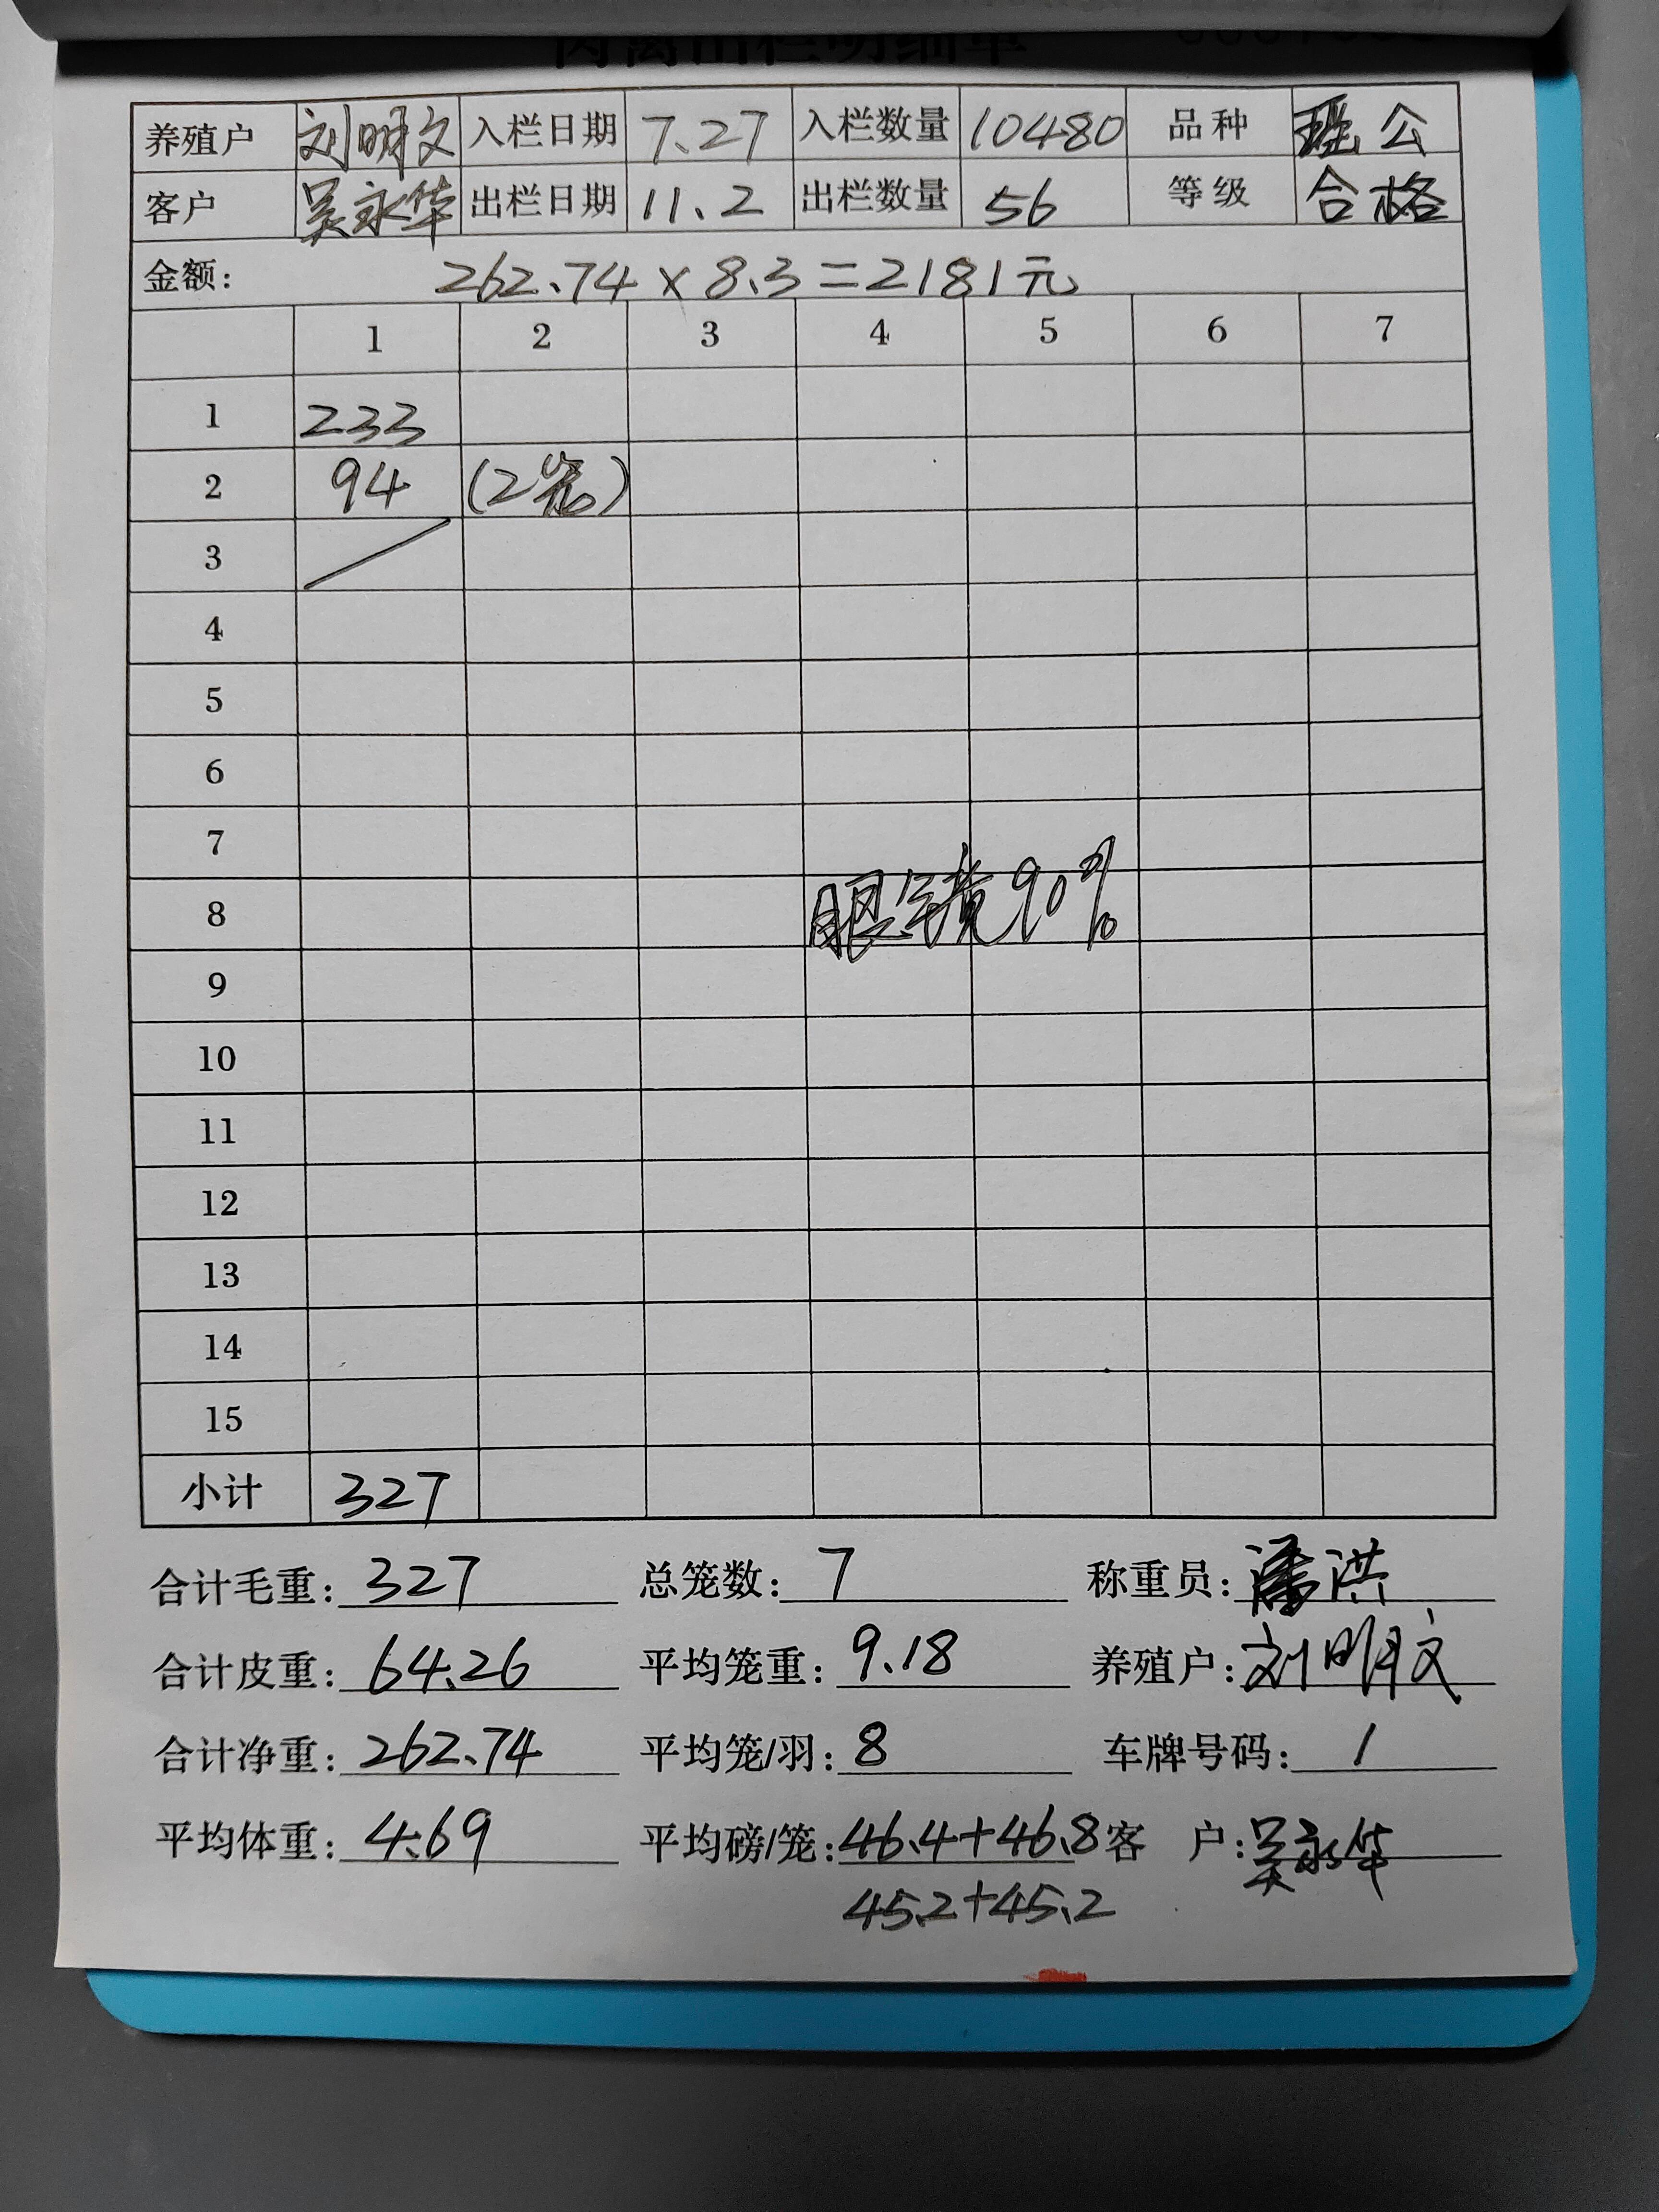 肉禽出栏明细单
养殖户 刘明文 入栏日期 7.27 入栏数量 10480 品种 瑶公
客户 吴永华 出栏日期 11.2 出栏数量 56 等级 合格
金额: 262.74 × 8.3 = 2181元
1 2 3 4 5 6 7
1 233
2 94 (2笼)
3 /
4
5
6
7
8 眼红黄90%
9
10
11
12
13
14
15
小计 327
合计毛重: 327 总笼数: 7 称重员: 潘洪
合计皮重: 64.26 平均笼重: 9.18 养殖户: 刘明文
合计净重: 262.74 平均笼/羽: 8 车牌号码: 1
平均体重: 4.69 平均磅/笼: 46.4+46.8 客 户: 吴永华
45.2+45.2